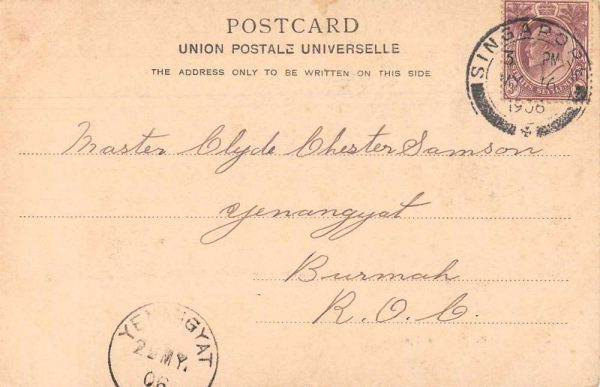 POSTCARD
UNION POSTALE UNIVERSELLE
THE ADDRESS ONLY TO BE WRITTEN ON THIS SIDE.
SINGAPORE
PM
1906
Master Clyde Chester Samson
Yenangyat
Burmah
R.O.C.
YENANGYAT
MY.
06